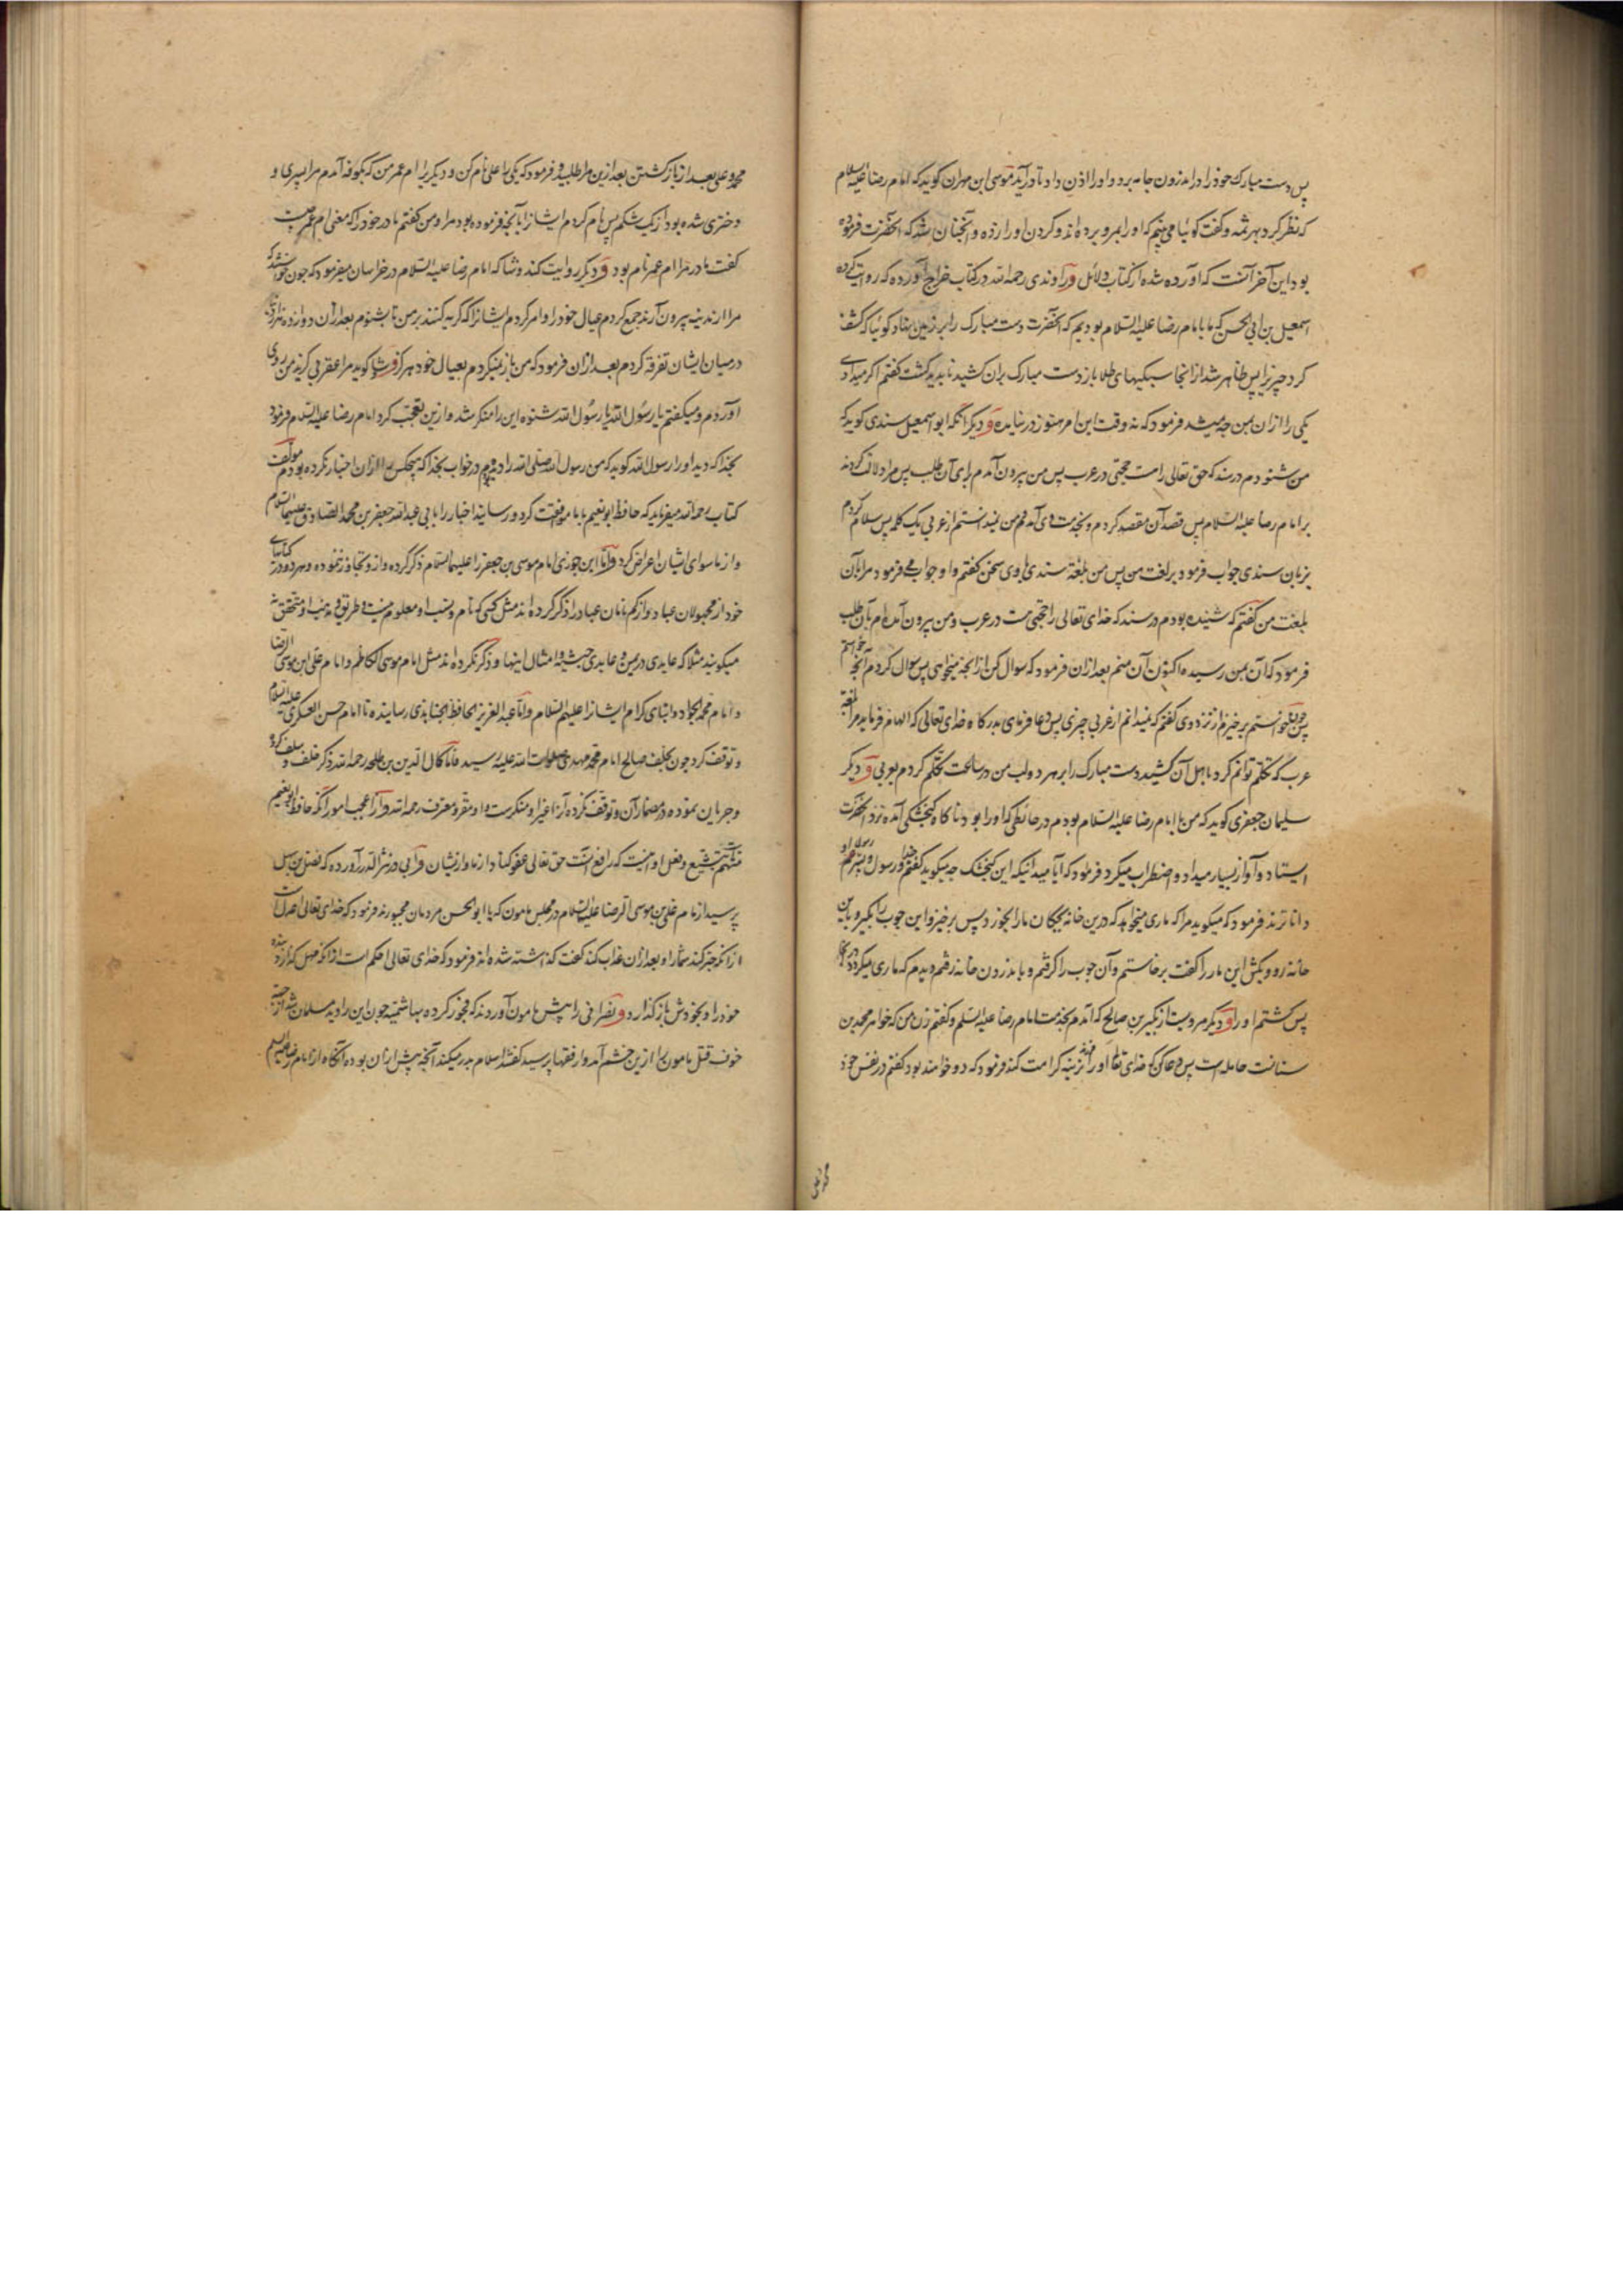 پس دست مبارک خود را در اندرون جامه برد و او را اذن داد تا درآید موسی ابن مهران کوید که امام رضا علیه السلام
که نظر کرد بهرثمه و کفت کوئیا می بینم که او را بمرو برده اند و کردن او را زده و آنچنان شد که آنحضرت فرموده
بود این آخر آنست که آورده شده از کتاب دلائل و راوندی رحمه الله در کتاب خرایج آورده که روایت کرده
اسمعیل بن ابی الحسن که ما با امام رضا علیه السلام بودیم که آنحضرت دست مبارک را بر زمین نهاد کوئیا که کشف
کرد چیزی را پس ظاهر شد از انجا سبیکهای طلا باز دست مبارک بران کشید ناپدید کشت کفتم اکر میدادی
یکی را ازان بمن چه میشد فرمود که نه وقت این امر هنوز در نیامده و دیکر انکه ابو اسمعیل سندی کوید که
من شنودم در سند که حق تعالی راست حجتی در عرب پس من بیرون آمدم برای آن طلب پس مرا دلالت کردند
بر امام رضا علیه السلام پس قصد آن مقصد کردم و بخدمت وی آمدم و من نمیدانستم از عربی یک کلمه پس سلام کردم
بزبان سندی جواب فرمود بر لغت من پس من بلغة سندی با وی سخن کفتم و او جواب می فرمود مرا بآن
بلغت من کفتم که شنیده بودم در سند که خدای تعالی را حجتی هست در عرب و من بیرون آمده ام بآن طلب
فرمود که آن بمن رسیده اکنون آن منم بعد ازان فرمود که سوال کن از انچه میخواهی پس سوال کردم آنچه خواستم
پس چون خواستم برخیزم از نزد وی کفتم که نمیدانم از عربی چیزی پس دعا فرمای بدرکاه خدای تعالی که الهام فرماید مرا بلغة
عرب که تکلم توانم کرد با اهل آن کشید دست مبارک را بر هر دو لب من در ساعت تکلم کردم بعربی و دیکر
سلیمان جعفری کوید که من با امام رضا علیه السلام بودم در حائطی که او را بود ناکاه کنجشکی آمده نزد آنحضرت
ایستاد و آواز بسیار میداد و اضطراب میکرد فرمود که آیا میدانی که این کنجشک چه میکوید کفتم خدا و رسول و پسر رسول او
دانا ترند فرمود که میکوید مرا که ماری میخواهد که درین خانه بچکان ما را بخورد پس برخیز و این چوب را بکیر و باین
خانه رو و بکش این مار را کفت برخاستم و آن چوب را کرفتم و باندرون خانه رفتم دیدم که ماری میکردد
پس کشتم او را و دیکر مرویست از بکیر بن صالح که آمدم بخدمت امام رضا علیه السلم و کفتم زن من که خواهر محمد بن
سنانست حامله است پس دعا کن که خدای تعالی او را فرزند نرینه کرامت کند فرمود که دو خواهند بود کفتم در نفس خود
محمد و علی
محمد و علی بعد از بازکشتن بعد ازین مرا طلبید و فرمود که یکی را علی نام کن و دیکری را ام عمر من که بکوفه آمدم مرا پسری و
دختری شده بود از یک شکم پس نام کردم ایشانرا بآنچه فرموده بود مرا و من کفتم مادر خود را که معنی ام عمر چیست
کفت مادر مرا ام عمر نام بود و دیکر روایت کند وشا که امام رضا علیه السلام در خراسان میفرمود که چون خواستند که
مرا از مدینه بیرون آرند جمع کردم عیال خود را و امر کردم ایشانرا که کریه کنند بر من تا بشنوم بعد ازان دوازده هزار دینار
در میان ایشان تفرقه کردم بعد ازان فرمود که من باز نمیکردم بعیال خود هرکز و وشا کوید مرا عقربی کزید من روی
آوردم و میکفتم یا رسول الله یا رسول الله شنونده این را منکر شد و ازین تعجب کرد امام رضا علیه السلام فرمود
بخدا که دید او را رسول الله کوید که من رسول الله صلی الله را دیدم در خواب بخدا که هیچکس را ازان اخبار نکرده بودم مولف
کتاب رحمه الله میفرماید که حافظ ابو نعیم با ما موافقت کرد و رسانید اخبار را بابی عبد الله جعفر بن محمد الصادق علیهما السلام
و از ما سوای ایشان اعراض کرد و اما ابن جوزی امام موسی بن جعفر را علیهما السلام ذکر کرده و ازو تجاوز ننموده و هر دو در کتابهای
خود از مجهولان عباد و از کم نامان عباد را ذکر کرده اند مثل کسی که نام و نسب او معلوم نیست و طریق و مذهب او متحقق نه
میکویند مثلا که عابدی در یمن و عابدی حبشیه و امثال اینها و ذکر نکرده اند مثل امام موسی الکاظم و امام علی ابن موسی الرضا
و امام محمد الجواد و ابنای کرام ایشانرا علیهم السلام و اما عبد العزیز الحافظ الجنابذی رسانیده تا امام حسن العسکری علیه السلام
و توقف کرد چون بخلف صالح امام محمد مهدی صلوات الله علیه رسید فاما کمال الدین بن طلحه رحمه الله ذکر خلف و سلف کرد
و جریان نموده در مضمار آن و توقف نکرده آنرا غیر او منکرست و او مقر و معترف رحمه الله و از اعجب امور انکه حافظ ابو نعیم
متهم است بتشیع و فعل او اینست که رافع آنست حق تعالی عفو کناد از ما و ازیشان و آبی در نثر الدرر آورده که فضل بن سهل
پرسید از امام علی بن موسی الرضا علیه السلام در مجلس مامون که یا ابو الحسن مردمان مجبورند فرمود که خدای تعالی اعدل است
از انکه جبر کند شما را و بعد ازان عذاب کند کفت کذاشته شده اند فرمود که خدای تعالی احکم است از انکه مهمل کذارد بنده
خود را و بخودش باز کذارد و نصرانی را پیش مامون آوردند که فجور کرده بهاشمیه چون این را دید مسلمان شد از جهت
خوف قتل مامون را ازین خشم آمد و از فقها پرسید کفتند اسلام هدر میکند آنچه پیش ازان بوده آنکاه از امام رضا علیه السلم